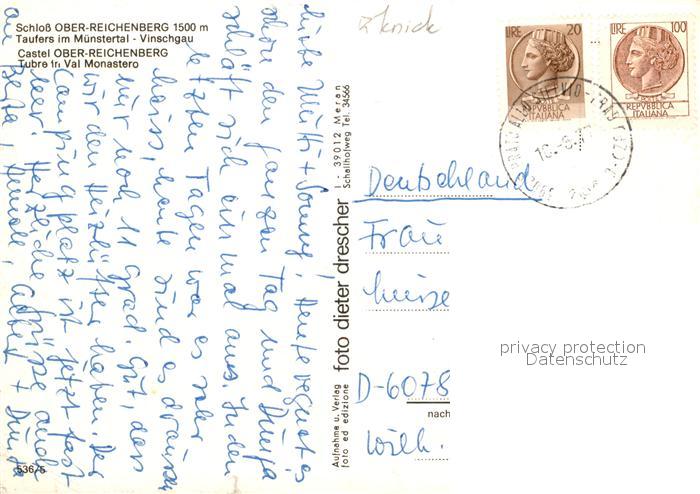 Schloß OBER-REICHENBERG 1500 m
Taufers im Münstertal - Vinschgau
Castel OBER-REICHENBERG
Tubre in Val Monastero
Liebe Mutti + Sonny! Heute regnet es
schon den ganzen Tag und
schläft sich einmal aus. In den
letzten Tagen war es sehr
heiss, heute sind es draussen
nur noch 11 Grad. Gut, dass
wir den Heizlüfter haben. Der
Campingplatz ist jetzt fast
leer! Herzliche Grüße auch
an
536/5
Aufnahme u. Verlag
foto ed edizione
foto dieter drescher
I - 39012 Meran
Schallhofweg Tel. 34566
knick
LIRE 20
REPVBBLICA
ITALIANA
LIRE 100
REPVBBLICA
ITALIANA
Deutschland
Frau
Luise
D-6078
nach
Wilh.
privacy protection
Datenschutz